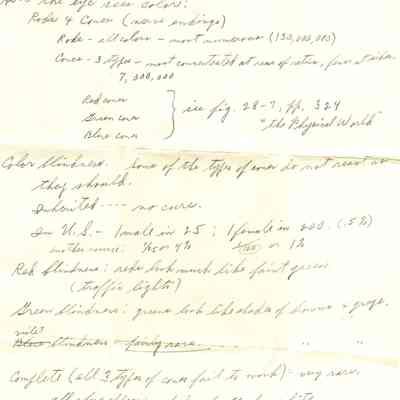 the eye sees colors:
Rods & Cones (nerve endings)
Rods - all colors - most numerous (130,000,000)
Cones - 3 types - most concentrated at rear of retina, fewer at sides.
7,000,000
Red cones
Green cones
Blue cones
see fig. 28-7, pp. 324
"the Physical World"
Color Blindness. Some of the types of cones do not react as
they should.
Inherited ---- no cure.
In U.S. - 1 male in 25; 1 female in 200. (.5%)
another source: 1/25 or 4% 1/100 or 1%
Red Blindness: reds look much like faint green
(traffic lights)
Green Blindness: greens look like shades of browns & grays.
violet
Blue blindness - fairly rare. " "
Complete (all 3 types of cones fail to work) - very rare.